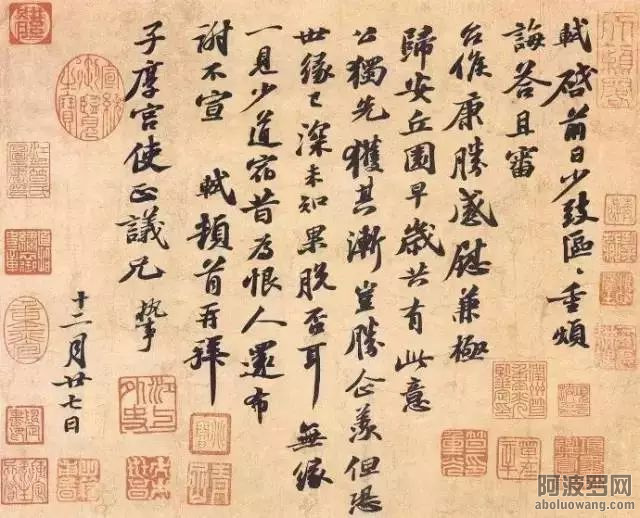 軾啓前日少致區〻重煩
誨答且審
台候康勝感慰兼極
歸安丘園早歲共有此意
公獨先獲其漸豈勝企羨但恐
世緣已深未知果脫否耳無緣
一見少道宿昔為恨人還布
謝不宣 軾頓首再拜
子厚宮使正議兄 執事
十二月廿七日
江上外史
阿波罗网
aboluowang.com